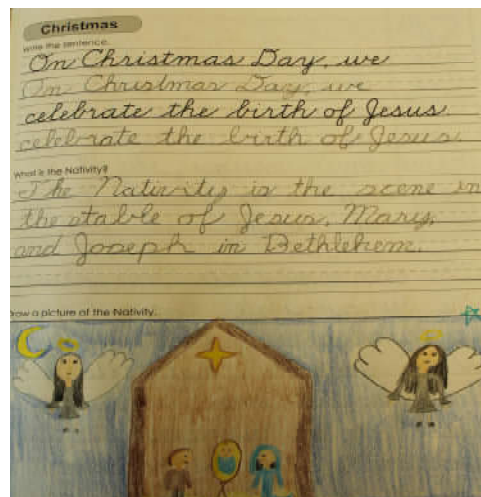 Christmas
Write the sentence.
On Christmas Day, we
On Christmas Day, we
celebrate the birth of Jesus.
celebrate the birth of Jesus.
What is the Nativity?
The Nativity is the scene in
the stable of Jesus, Mary,
and Joseph in Bethlehem.
raw a picture of the Nativity.